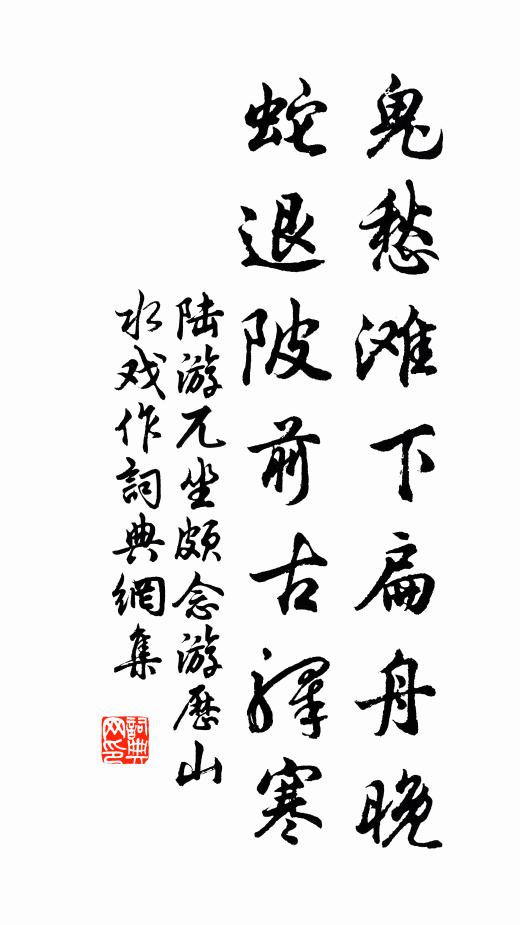 鬼愁滩下扁舟晚
蛇退陂前古驿寒
陆游兀坐颇念游历山
水戏作詞典網集
詞典網印